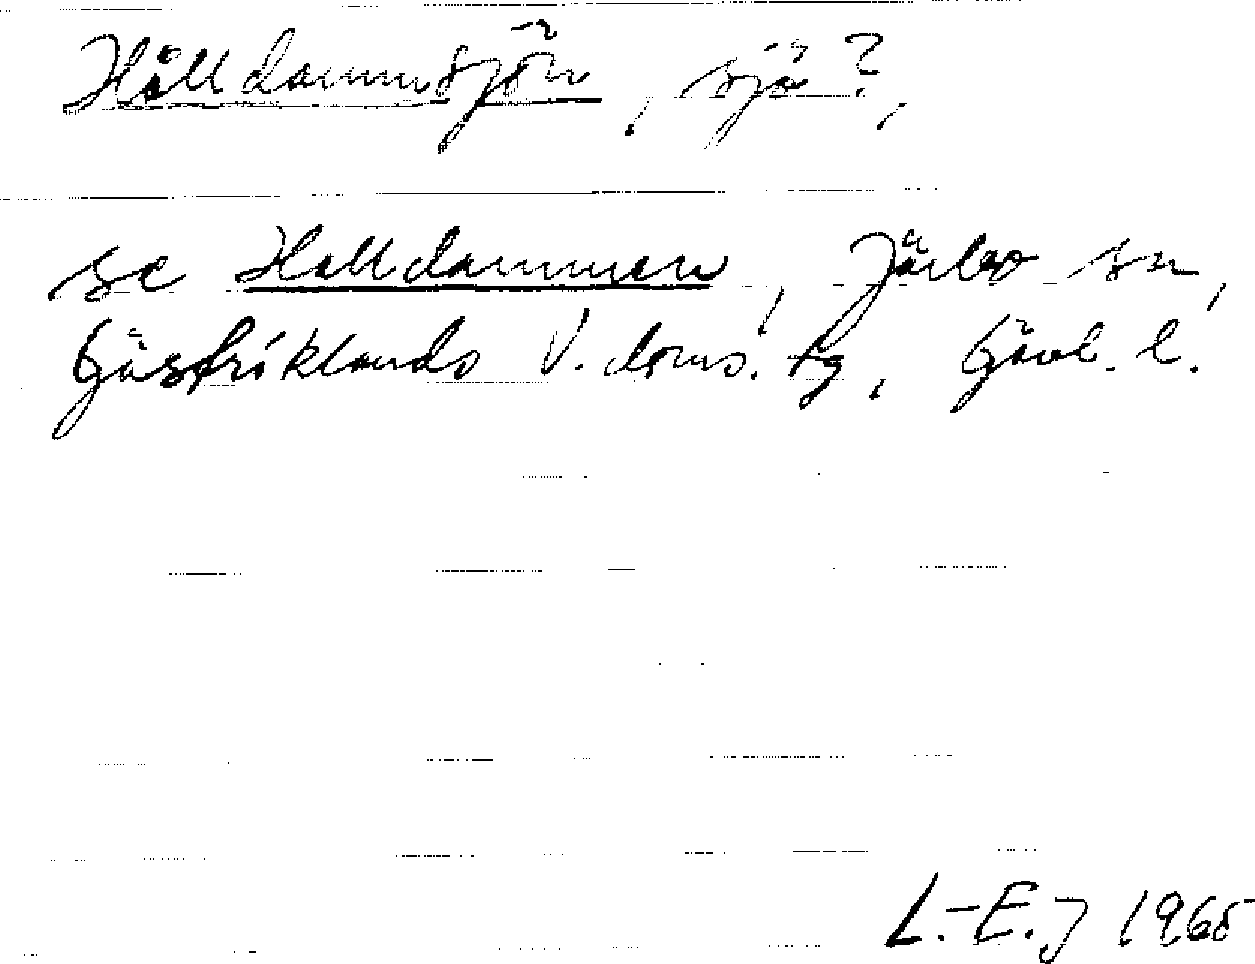 Hålldammsjön, sjö?,
se Halldammen, Järbo sn,
Gästriklands V. doms. tg, Gävl. l.
L.-E. J 1965